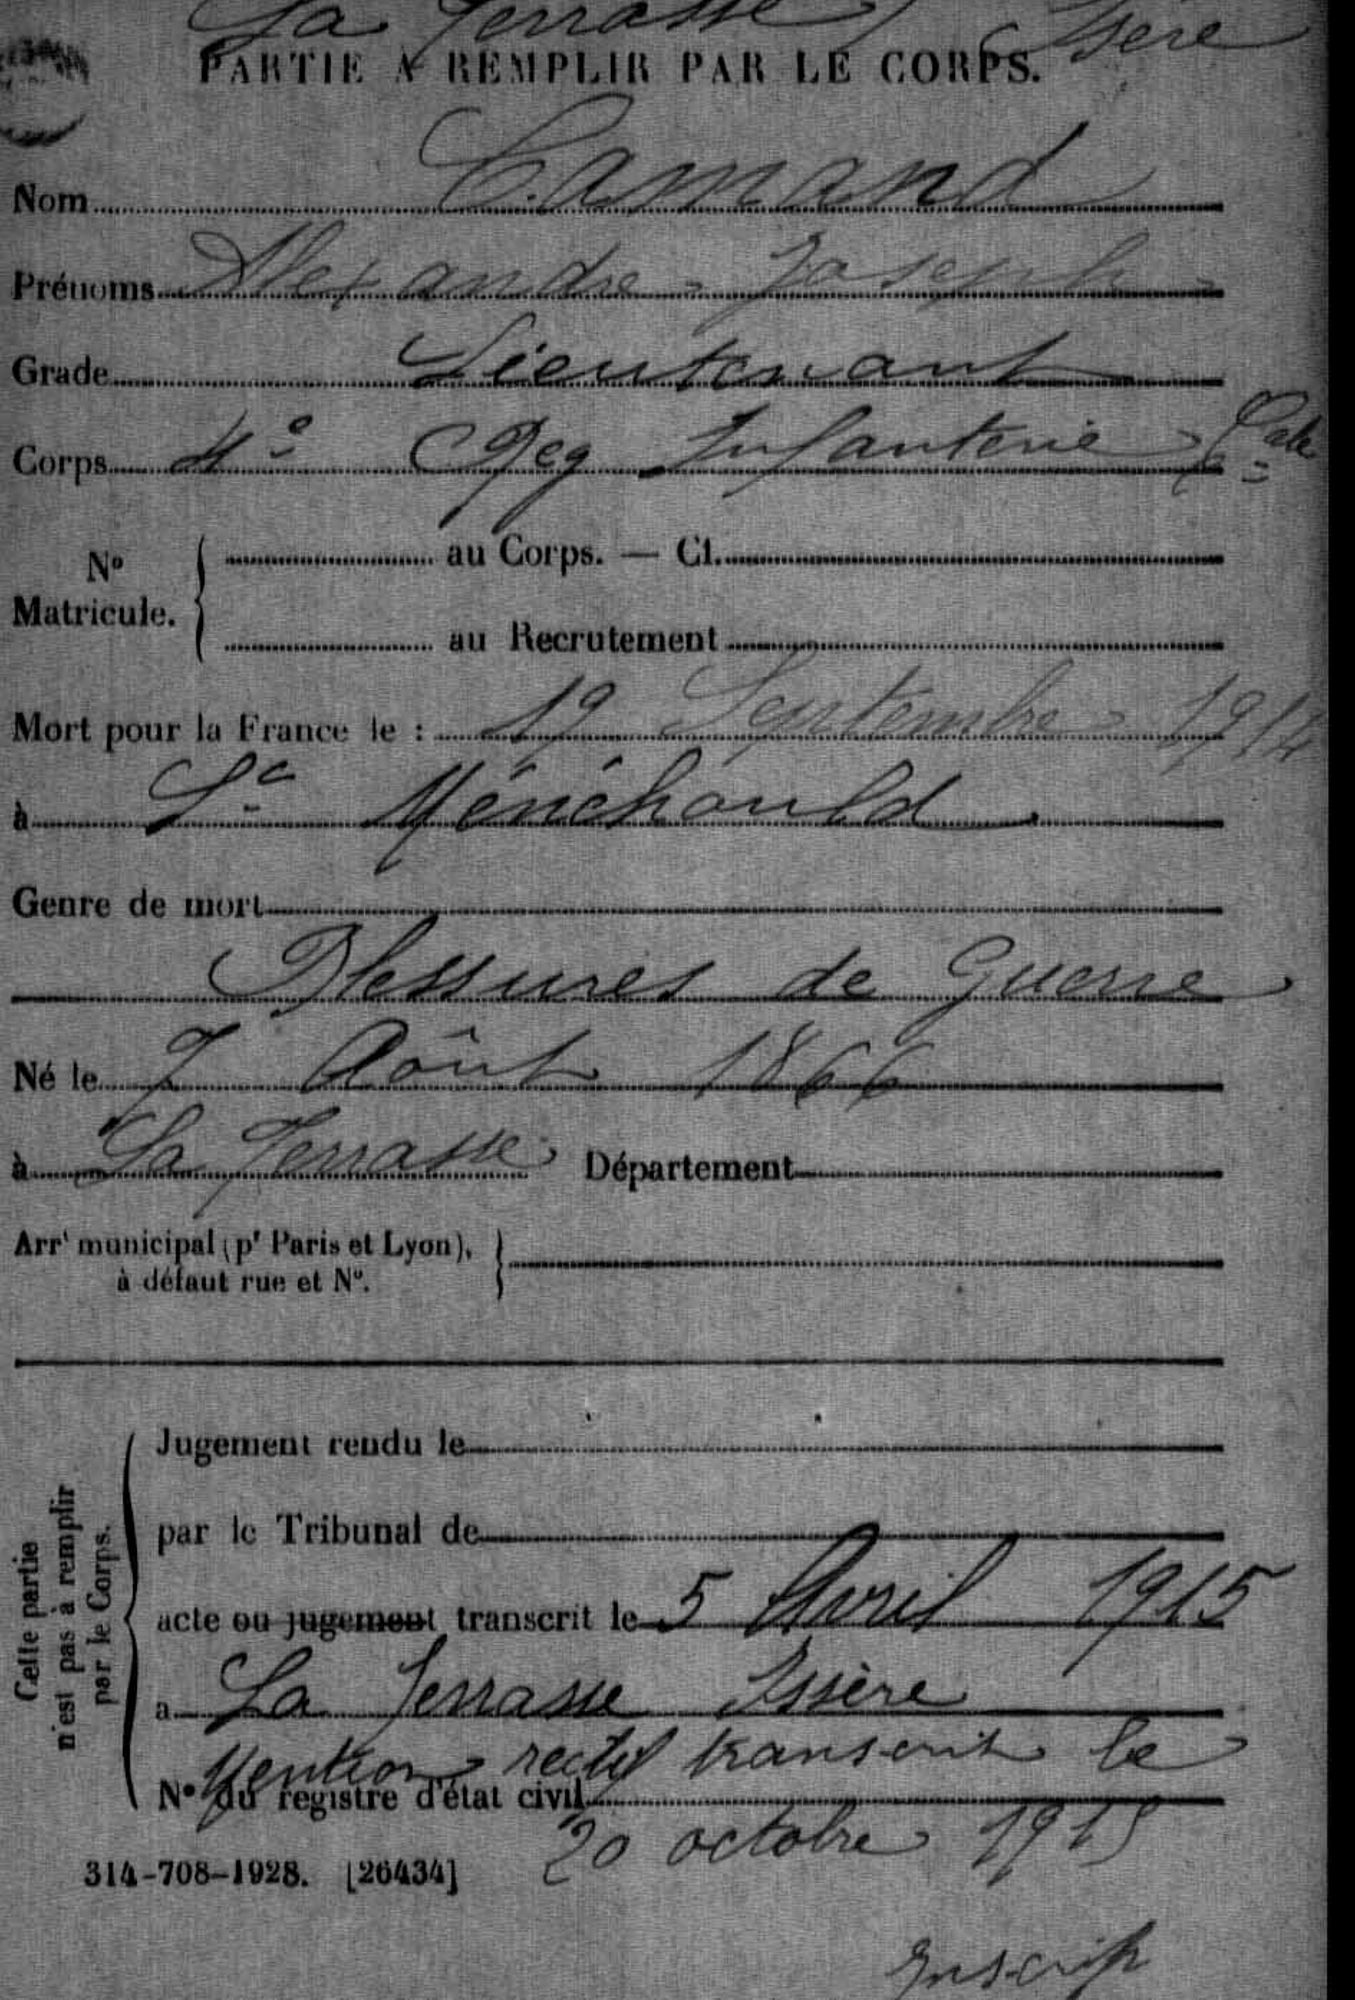 La Terrasse Isère
PARTIE A REMPLIR PAR LE CORPS.
Nom Camand
Prénoms Alexandre - Joseph -
Grade Lieutenant
Corps 4e Reg Infanterie - Cale
No Matricule. { au Corps. — Cl.
au Recrutement
Mort pour la France le : 19 Septembre - 1914
à Ste Ménéhould
Genre de mort
Blessures de Guerre
Né le 7 Août 1866
à La Terrasse Département
Arrt municipal (pr Paris et Lyon), }
à défaut rue et No.
Cette partie
n'est pas à remplir
par le Corps.
Jugement rendu le
par le Tribunal de
acte ou jugement transcrit le 5 Avril 1915
a La Terrasse Issère
Mention rectif transcrit le
No du registre d'état civil
20 octobre 1915
314-708-1928. [26434]
Inscrip